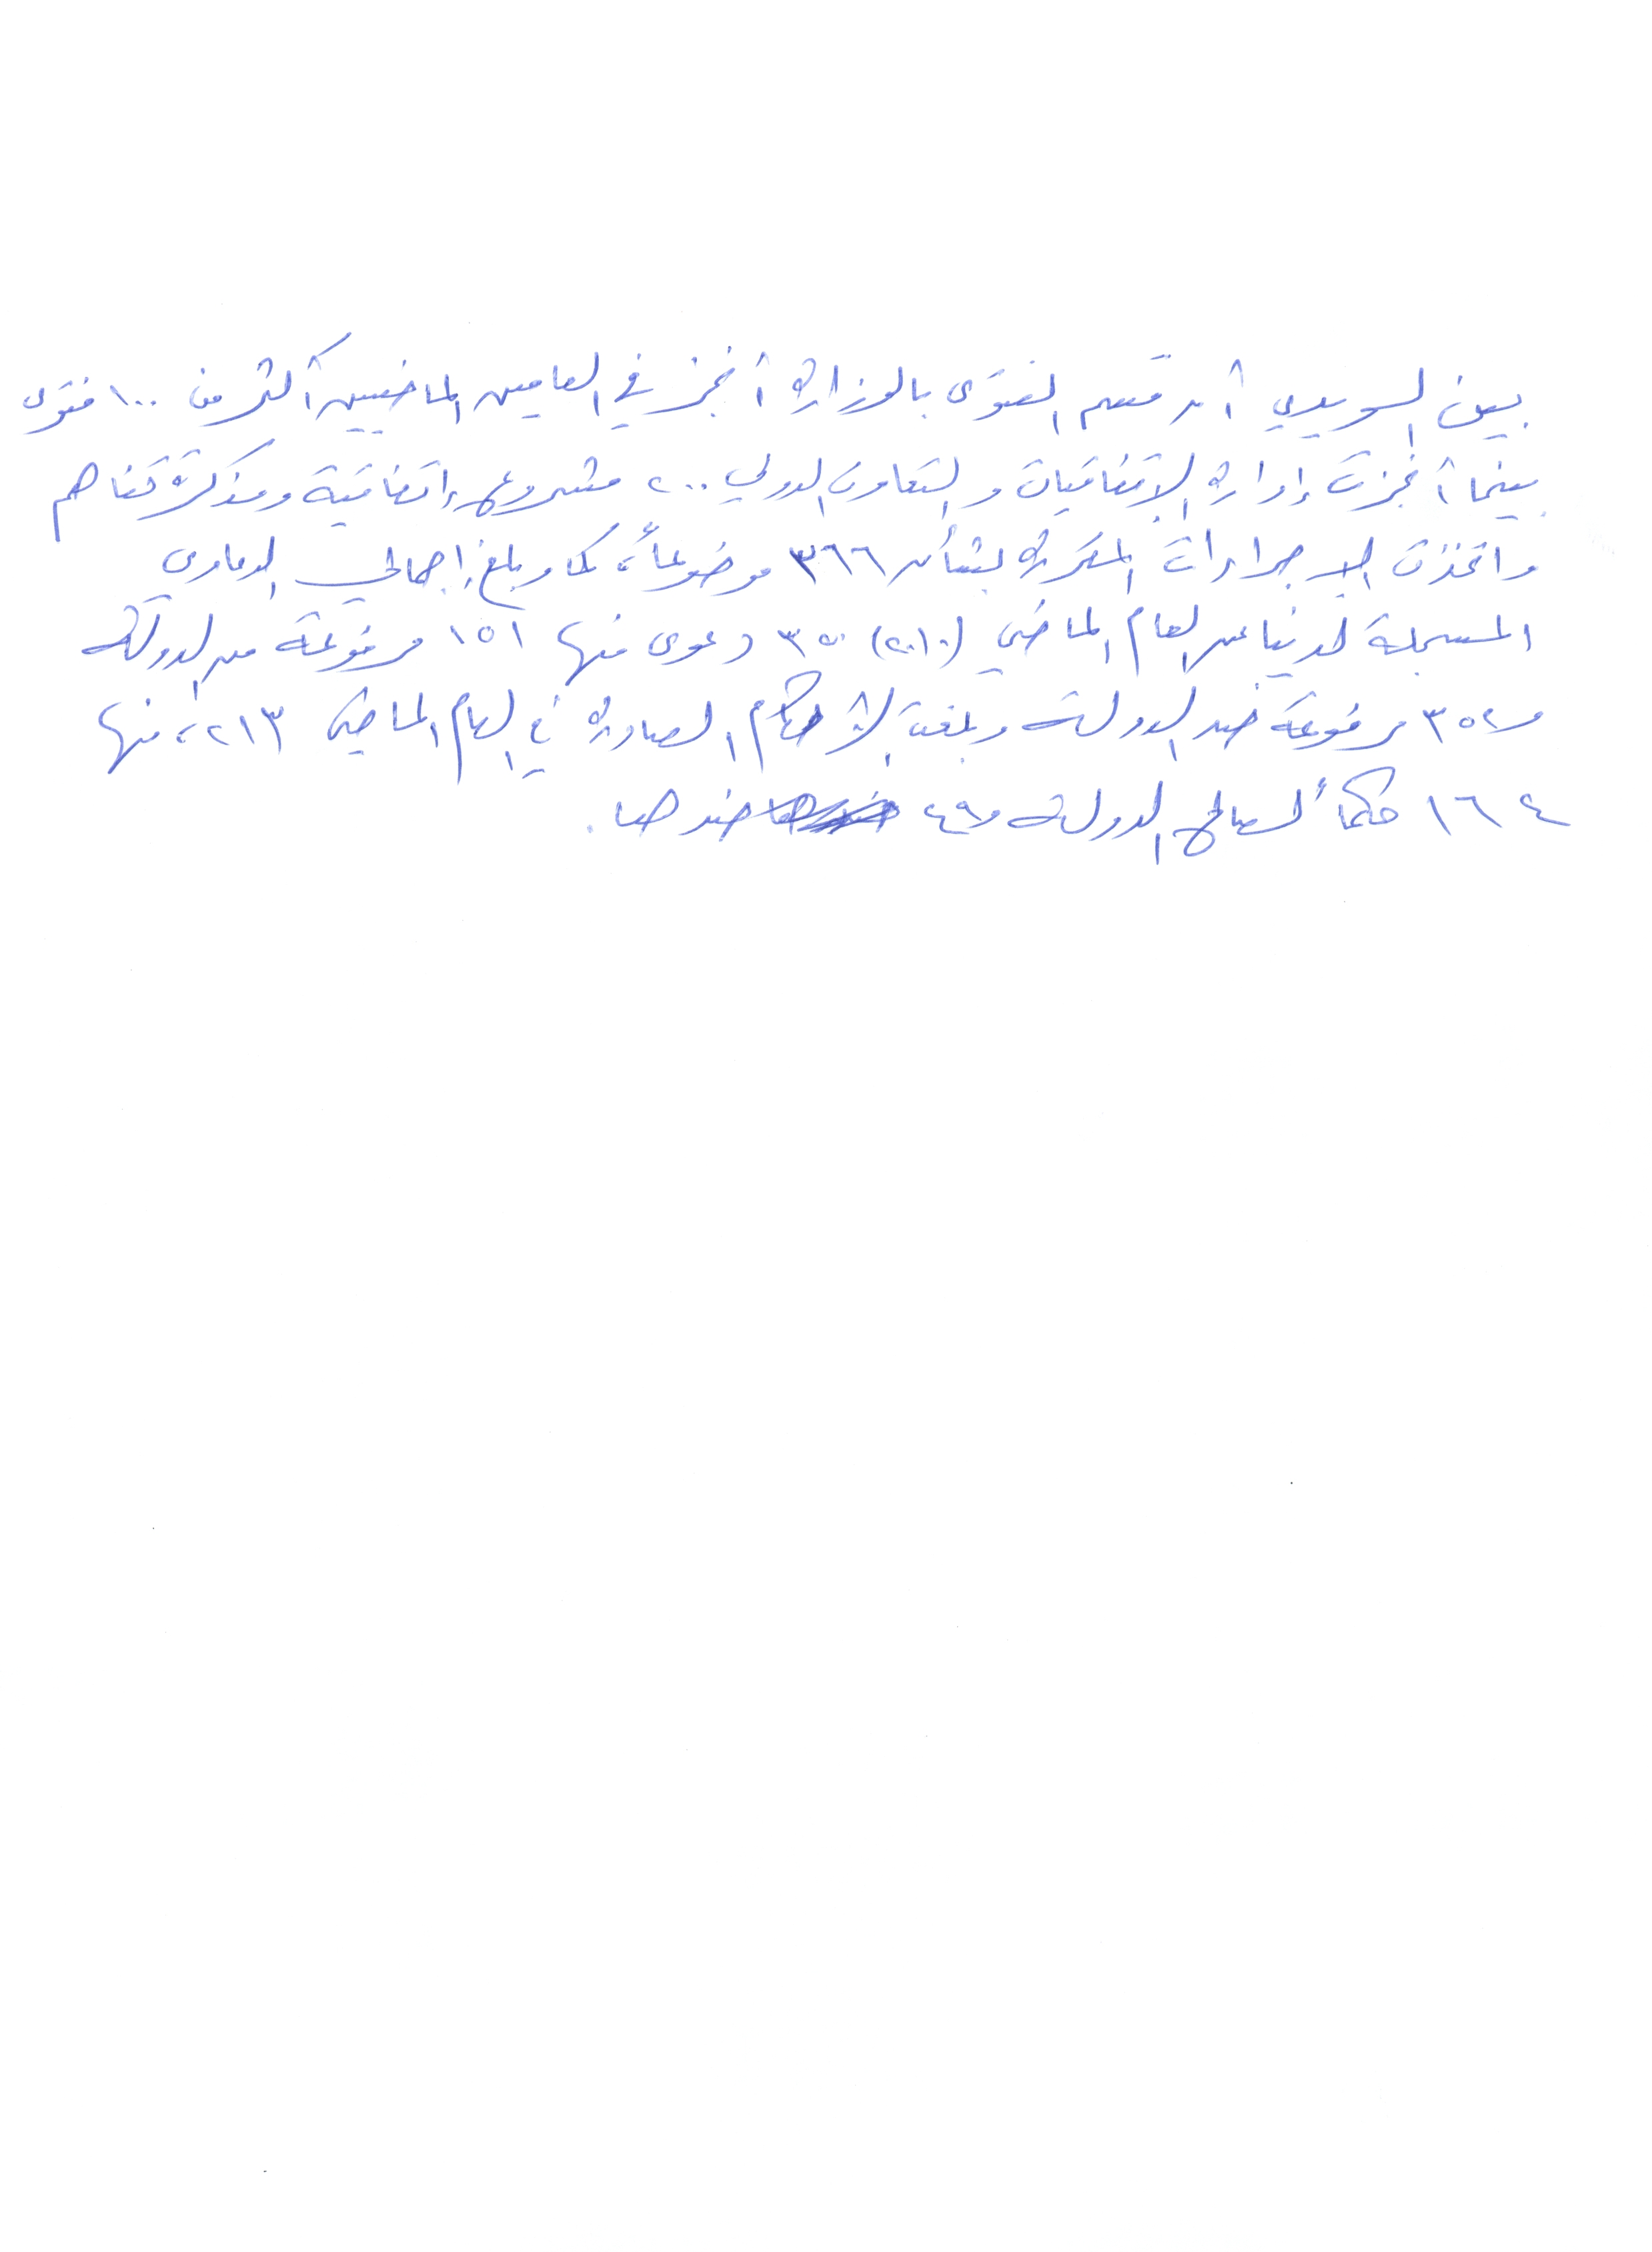 بين السويدي أن قسم الفتوى بالوزارة أنجز في العامين الماضيين أكثر من ١٠٠ فتوى
بينما أنجزت إدارة الاتفاقيات والتعاون الدولي ٢٠٠ مشروع اتفاقية ومذكرة تفاهم
واتخذت الإجراءات المقررة بشأن ٣٦٦ موضوعاً، كما وبلغ إجمالي الدعاوى
المسجلة لدينا عن العام الماضي (٢٠١٠) ٣٥٠ دعوى منها ١٥١ مرفوعة من الدولة
و٣٥٢ مرفوعة ضد الدولة وبلغت الأحكام الصادرة في العام الماضي ٢١٣، منها
١٦٤ حكماً لصالح الدولة و٤٩ ضدها.